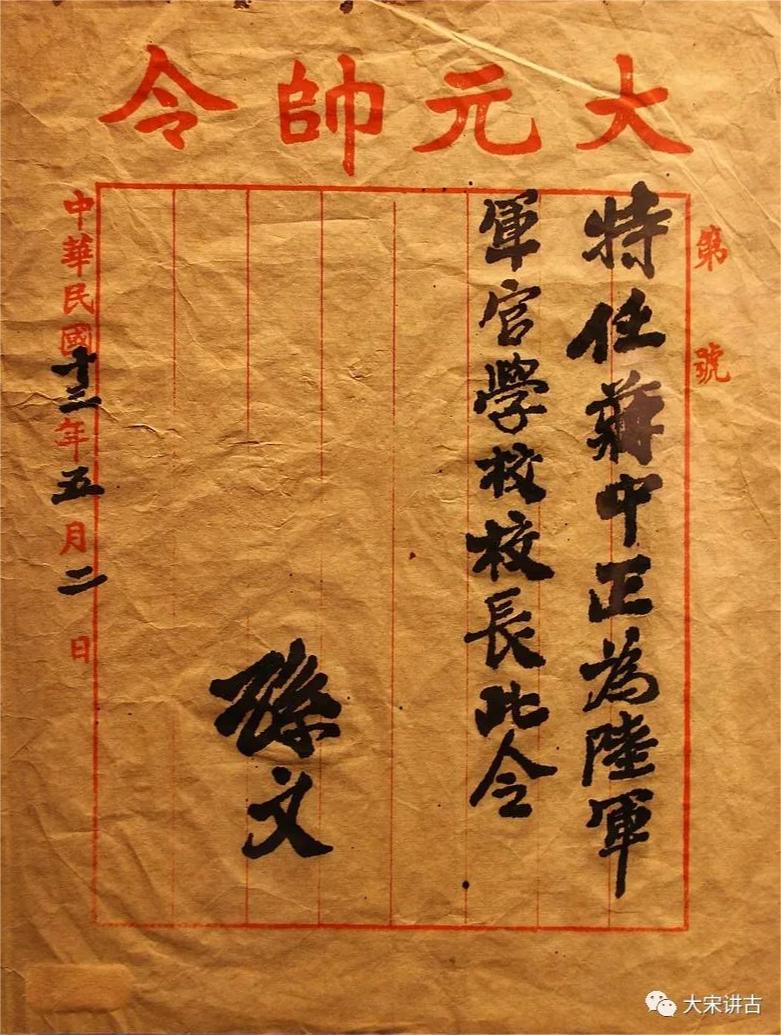 大元帥令
第 號
特任蔣中正為陸軍
軍官學校校長此令
孫文
中華民國十三年五月二日
大宋讲古